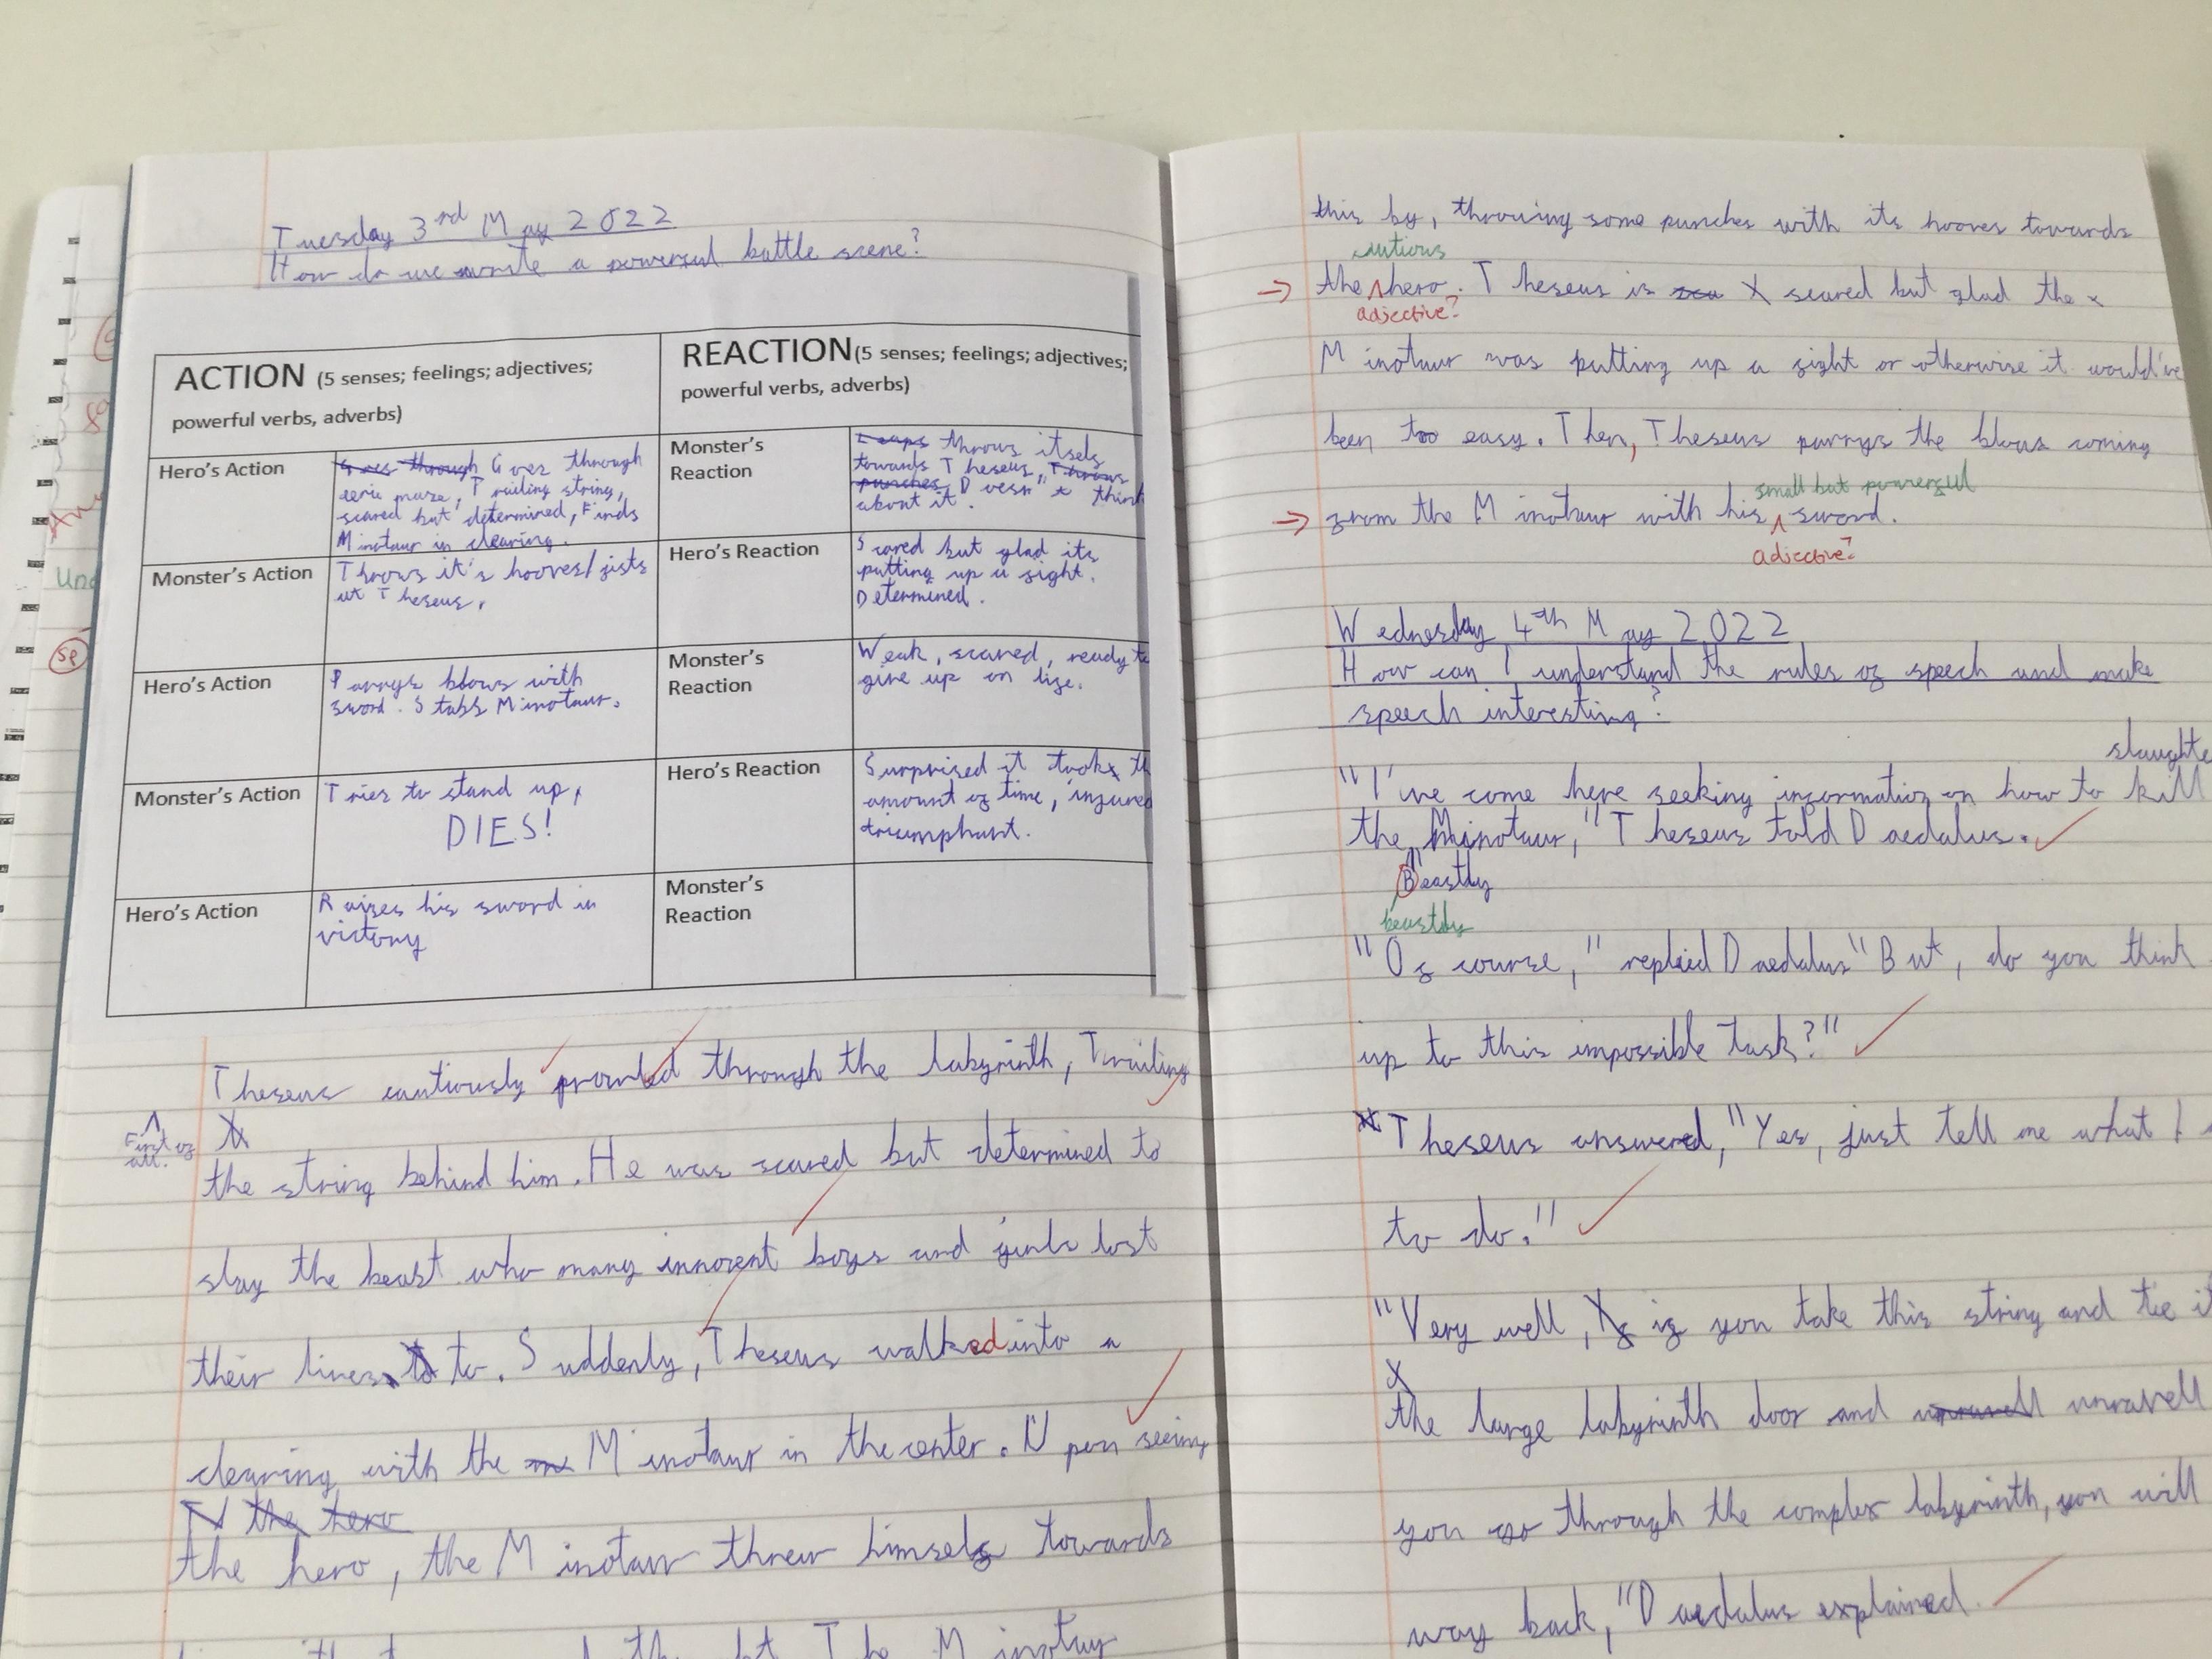 Tuesday 3rd May 2022
How do we write a powerful battle scene?
ACTION (5 senses; feelings; adjectives;
powerful verbs, adverbs)
REACTION (5 senses; feelings; adjectives;
powerful verbs, adverbs)
Hero's Action
Goes through Goes through
eerie maze, Trailing string,
scared but determined, Finds
Minotaur in clearing.
Monster's
Reaction
Leaps throws itself
towards Theseus, Throws
punches Doesn't think
about it.
Monster's Action
Throws it's hooves/fists
at Theseus.
Hero's Reaction
Scared but glad its
putting up a fight.
Determined.
Hero's Action
Parrys blows with
sword. Stabs Minotaur.
Monster's
Reaction
Weak, scared, ready to
give up on life.
Monster's Action
Tries to stand up,
DIES!
Hero's Reaction
Surprised it took th
amount of time, injured
triumphant.
Hero's Action
Raises his sword in
victory
Monster's
Reaction
Theseus cautiously prowled through the labyrinth, Trailing
First of
all.
the string behind him. He was scared but determined to
slay the beast who many innocent boys and girls lost
their lives to. Suddenly, Theseus walked into a
clearing with the Minotaur in the center. Upon seeing
the hero
the hero, the Minotaur threw himself towards
The Minotaur
this by, throwing some punches with its hooves towards
cautious
→ the hero. Theseus is scared but glad the
adjective?
Minotaur was putting up a fight or otherwise it would've
been too easy. Then, Theseus parrys the blows coming
small but powerful
→ from the Minotaur with his sword.
adjective?
Wednesday 4th May 2022
How can I understand the rules of speech and make
speech interesting?
slaughte
"I've come here seeking information on how to kill
the Minotaur," Theseus told Daedalus.
Beastly
beastly
"Of course," replied Daedalus "But, do you think
up to this impossible task?"
Theseus answered, "Yes, just tell me what I
to do."
"Very well, if you take this string and tie it
the large labyrinth door and unravell
you go through the complex labyrinth, you will
way back," Daedalus explained.
Und
sp